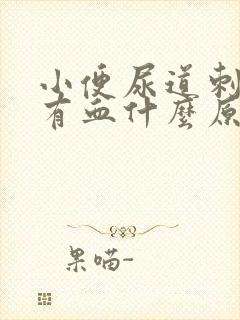 小便尿道刺
有血什麼原
果喵-